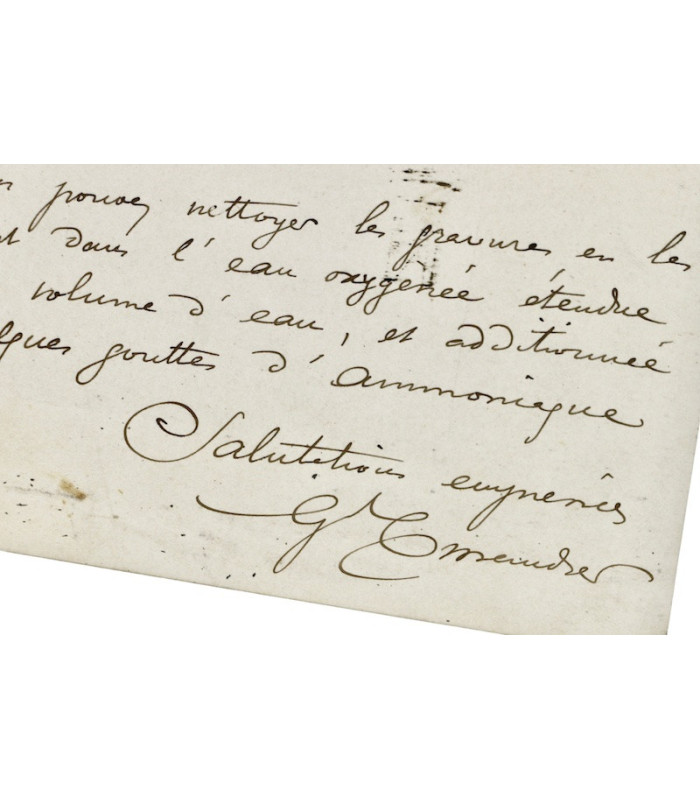 pouvez nettoyer les gravures en les
dans l'eau oxygénée étendue
volume d'eau, et additionnée
gouttes d'ammoniaque
Salutations empressées